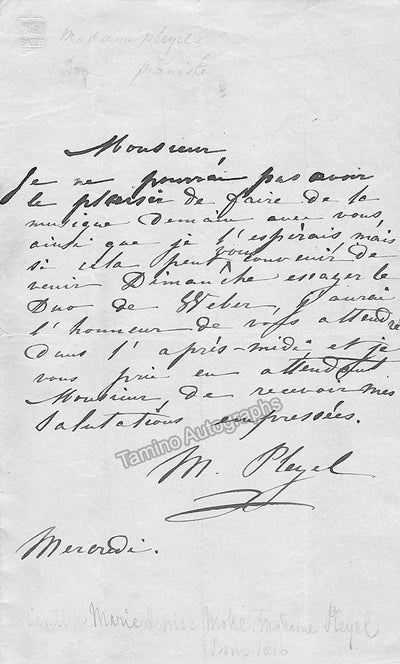 Madame pleyel
pianiste
Monsieur,
Je ne pourrai pas avoir
le plaisir de faire de la
musique Demain avec vous,
ainsi que je l'espérais mais
si cela peut vous convenir de
venir Dimanche essayer le
Duo de Weber, j'aurai
l'honneur de vous attendre
Dans l'après-midi et je
vous prie en attendant
Monsieur, de recevoir mes
salutations empressées.
Tamino Autographs
M. Pleyel
Mercredi.
Marie Moke. Madame Pleyel